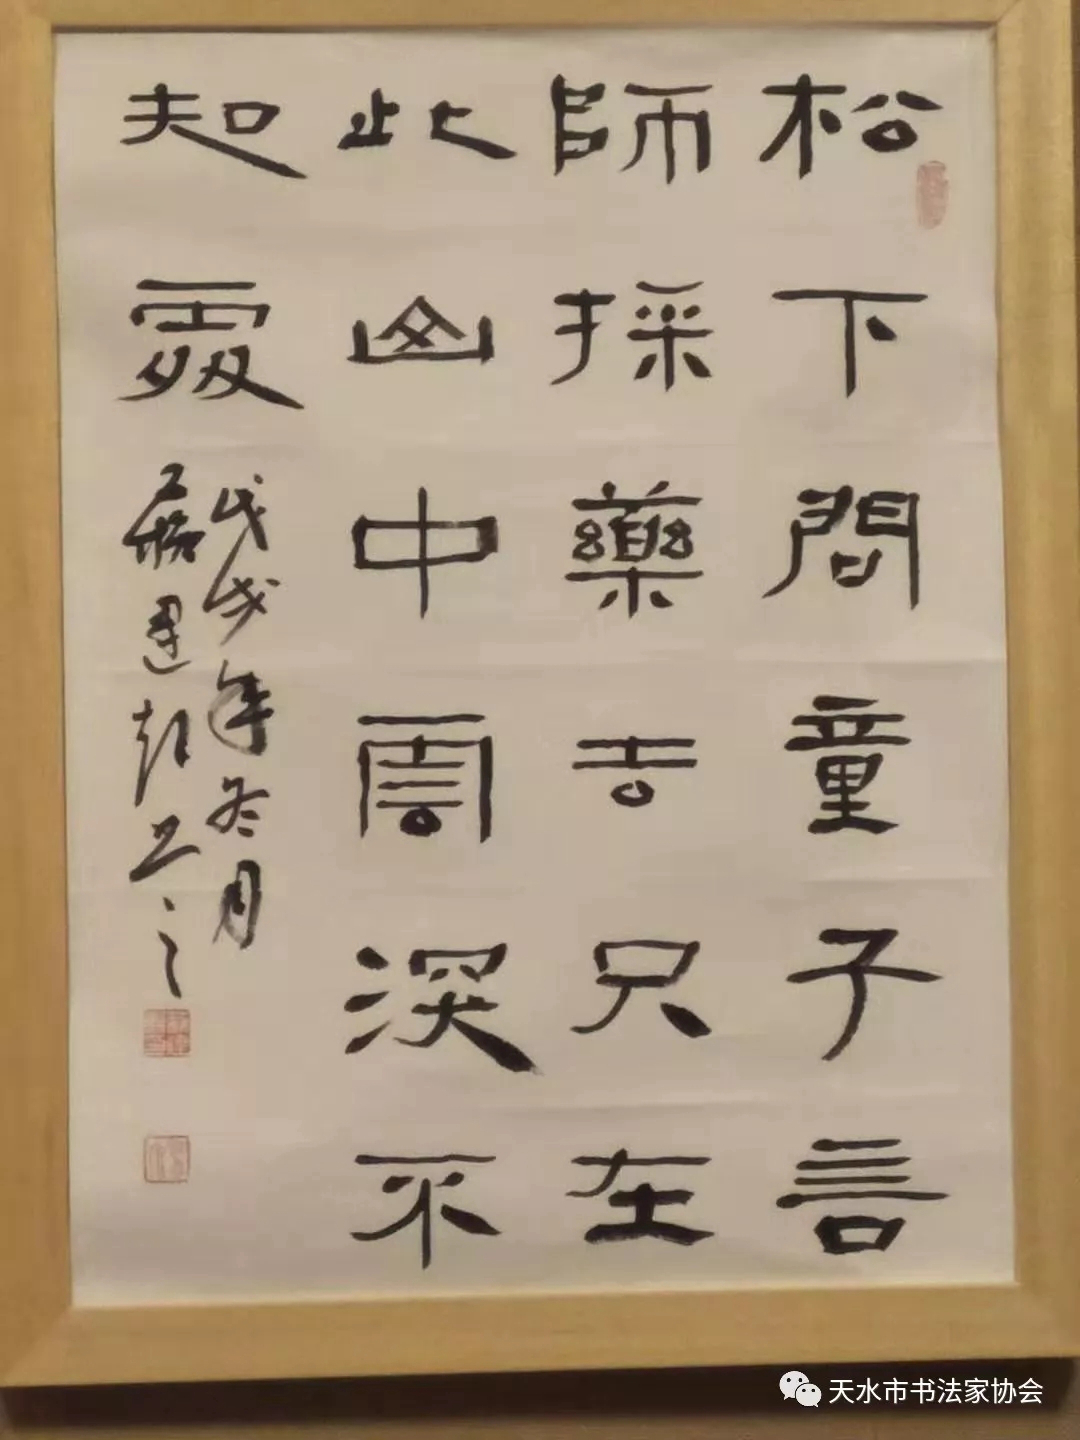 松下問童子言
師採藥去只在
此山中雲深不
知處
戊戌年冬月
天水市书法家协会